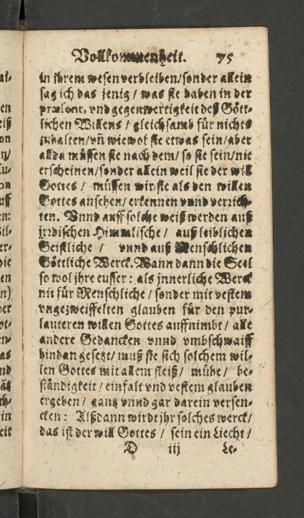 Vollkommenheit. 75
in ihrem wesen verbleiben/ sonder allein
sag ich das jenig / was sie haben in der
præsentz, vnd gegenwertigkeit deß Gött-
lichen Willens / gleichsamb für nichts
zuhalten/ vñ wiewol sie etwas sein/ aber
allda müssen sie nach dem / so sie sein/ nie
erscheinen/ sonder allein weil sie der will
Gottes / müssen wir sie als den willen
Gottes ansehen/ erkennen vnnd verrich-
ten. Vnnd auff solche weiß werden auß
jrdischen Himmlische / auß leiblichen
Geistliche / vnnd auß Menschlichen
Göttliche Werck. Wann dann die Seel
so wol jhre eusser: als jnnerliche Werck
nit für Menschliche / sonder mit vestem
vngezweiffelten glauben für den pur-
lauteren willen Gottes auffnimbt / alle
andere Gedancken vnnd vmbschwaiff
hindan gesetzt/ muß sie sich solchem wil-
len Gottes mit allem fleiß / mühe / be-
ständigkeit / einfalt vnd vestem glauben
ergeben / gantz vnnd gar darein versen-
cken: Alßdann wirdt jhr solches werck/
das ist der will Gottes / sein ein Liecht /
D iij Le-